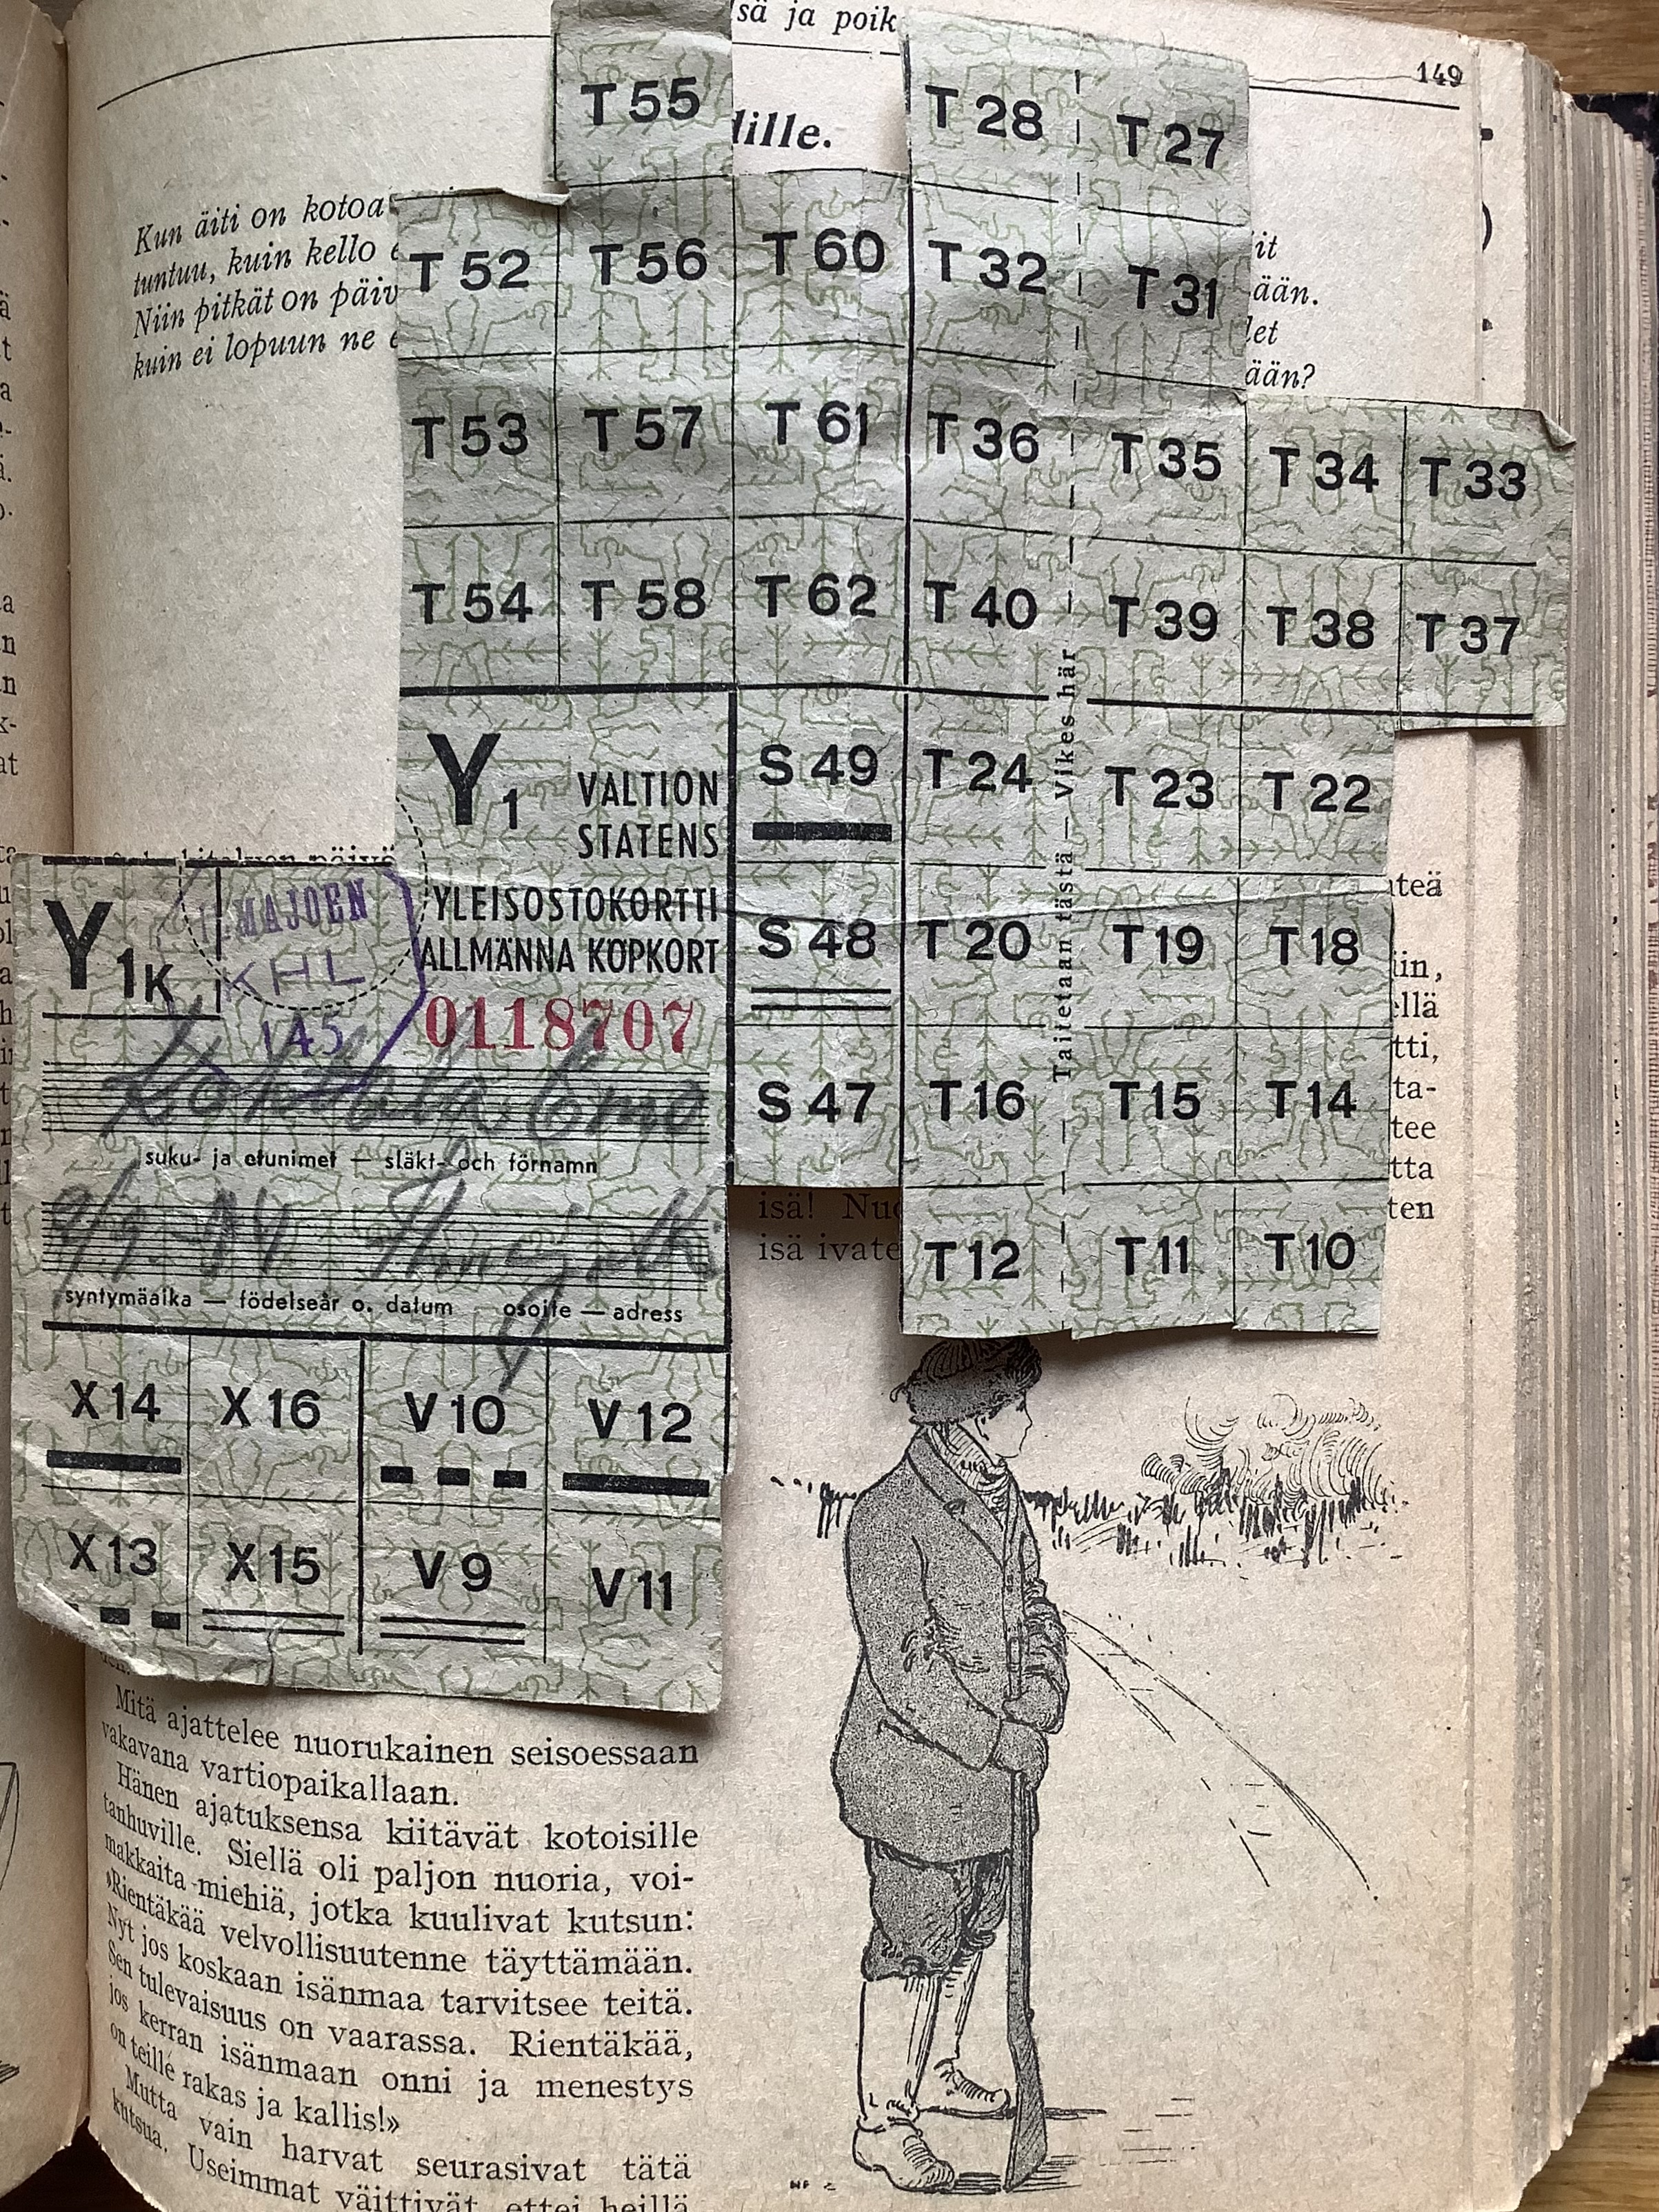 sä ja poik
149
dille.
Kun äiti on kotoa
tuntuu, kuin kello e
Niin pitkät on päiv
kuin ei lopuun ne e
it
ään.
let
ään?
T 55
T 28
T 27
T 52
T 56
T 60
T 32
T 31
T 53
T 57
T 61
T 36
T 35
T 34
T 33
T 54
T 58
T 62
T 40
T 39
T 38
T 37
Y1
VALTION
STATENS
YLEISOSTOKORTTI
ALLMÄNNA KÖPKORT
0118707
Y1K
ILMAJOEN
KHL
145
suku- ja etunimet — släkt- och förnamn
syntymäaika — födelseår o. datum osoite — adress
S 49
T 24
T 23
T 22
S 48
T 20
T 19
T 18
S 47
T 16
T 15
T 14
T 12
T 11
T 10
Taitetaan tästä — Vikes här
X 14
X 16
V 10
V 12
X 13
X 15
V 9
V 11
iin,
ellä
tti,
ta-
tee
tta
ten
isä! Nuo
isä ivate
Mitä ajattelee nuorukainen seisoessaan
vakavana vartiopaikallaan.
Hänen ajatuksensa kiitävät kotoisille
tanhuville. Siellä oli paljon nuoria, voi-
makkaita miehiä, jotka kuulivat kutsun:
»Rientäkää velvollisuutenne täyttämään.
Nyt jos koskaan isänmaa tarvitsee teitä.
Sen tulevaisuus on vaarassa. Rientäkää,
jos kerran isänmaan onni ja menestys
on teille rakas ja kallis!»
Mutta vain harvat seurasivat tätä
kutsua. Useimmat väittivät, ettei heillä